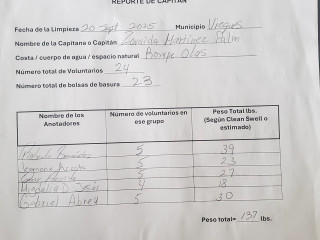 REPORTE DE CAPITÁN
Fecha de la Limpieza 20 Sept 2025 Municipio Vieques
Nombre de la Capitana o Capitán Zoraida Martínez Palm
Costa / cuerpo de agua / espacio natural Rompe Olas
Número total de Voluntarios 24
Número total de bolsas de basura 23
Nombre de los Anotadores
Número de voluntarios en ese grupo
Peso Total lbs. (Según Clean Swell o estimado)
5 39
5 23
5 27
4 18
Gabriel Abreu 5 30
Peso total= 137 lbs.